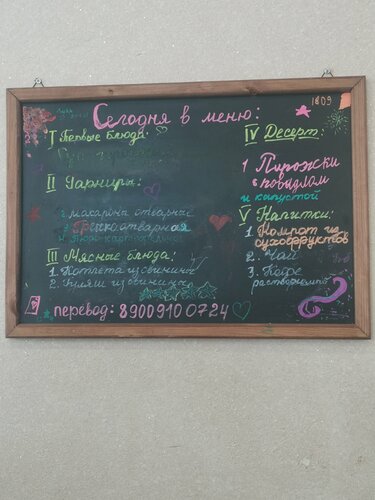 18 09
Сегодня в меню:
I Первые блюда:
II Гарниры:
2. макароны отварные
3. Гречка отварная
III Мясные блюда:
1. Котлета из свинины
2. Гуляш из свинины
IV Десерт:
1 Пирожки
с повидлом
и капустой
V Напитки:
1. Компот из
сухофруктов
2. Чай
3. Кофе
растворимый
перевод: 89009100724